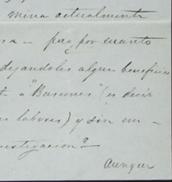 mina actualmente
sa - paz por cuanto
dejandoles algun beneficio
"Barrenes" (es decir
s labores) y sin un
estigacion?
aunque